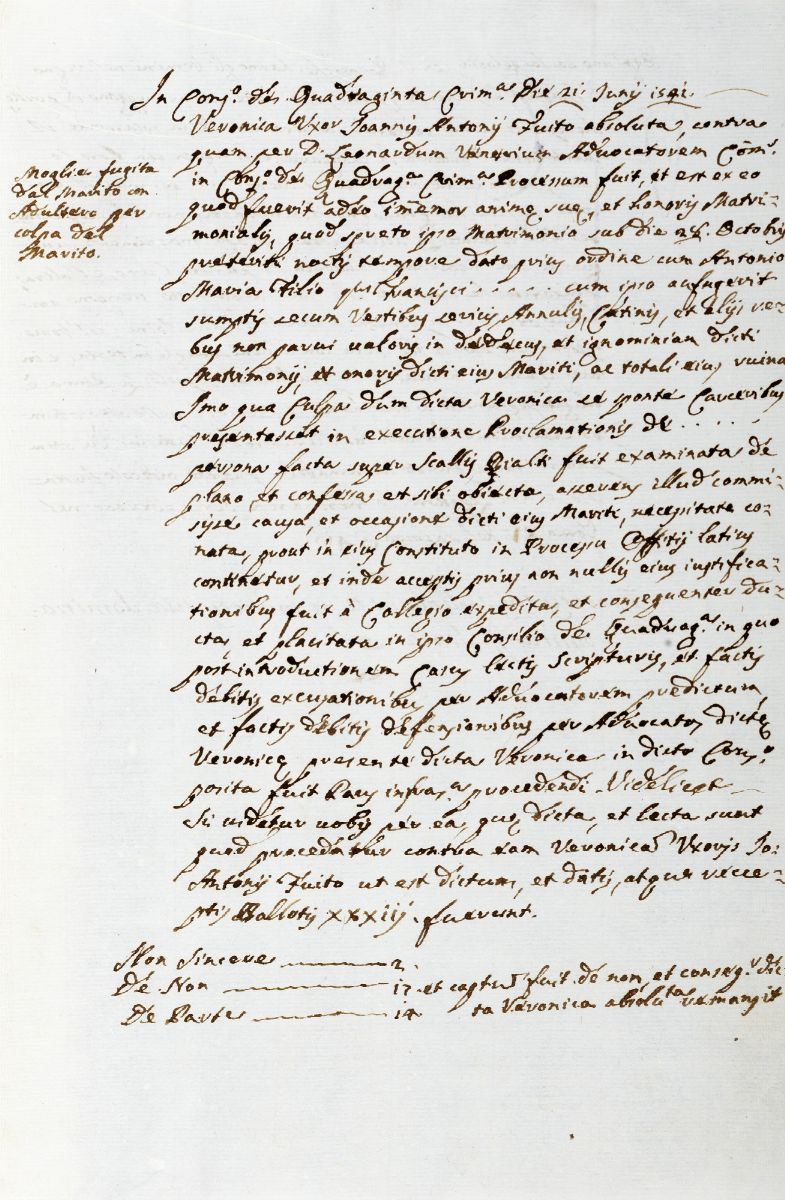 In Conso. de Quadraginta Crim.s Die 21. Junij 1541.
Veronica Vxor Joannis Antonij Fuito absoluta, contra
quam per D. Leonardum Venerium Advocatorem Com.s
Moglie fugita
dal Marito con
Adultero per
colpa del
Marito.
in Conso. de Quadrag.a Crim.s Processum fuit, et est ex eo
quod fuerit adeo immemor animę suę, et honoris Matri-
monialis, quod spreto ipso Matrimonio sub die 28. Octobris
preteriti noctis tempore dato prius ordine cum Antonio
Maria Filio qu. Francisci . . . . . cum ipso aufugerit
sumptis secum Vestibus sericis Annulis, Catinis, et alijs re-
bus non parui ualoris in dedecus, et ignominiam dicti
Matrimonij, et onoris dicti eius Mariti, ac totali eius ruina
Imo qua Culpa dum dicta Veronica se sponte Carceribus
presentasset in executione Proclamationis de . . . . . .
persona facta super Scallis Rialti fuit examinata de
plano, et confessa et sibi obiecta, asserens illud commi-
sisse causa, et occasione dicti eius Mariti, necessitate co-
nata, prout in eius Constituto in Processu Offitij latius
continetur, et inde acceptis prius non nullis eius iustifica-
tionibus fuit à Collegio expedita, et consequenter du-
cta, et placitata in ipso Consilio de Quadrag.a in quo
post introductionem Casus lectis Scripturis, et factis
debitis excusationibus per Advocatorem predictum,
et factis debitis defensionibus per Advocatos dictę
Veronicę presente dicta Veronica in dicto Cons.o
posita fuit Pars infras.a procedendi Videlicet
Si uidetur uobis per ea, quę dicta, et lecta sunt
quod procedatur contra eam Veronicam Vxoris Jo:
Antonij Fuito ut est dictum, et datis, atque recce-
ptis Ballotis XXXIIJ. fuerunt.
Non Sincere 2.
De Non 17. et captum fuit de non, et conseq.r dic-
De Parte 14 ta Veronica absoluta remansit